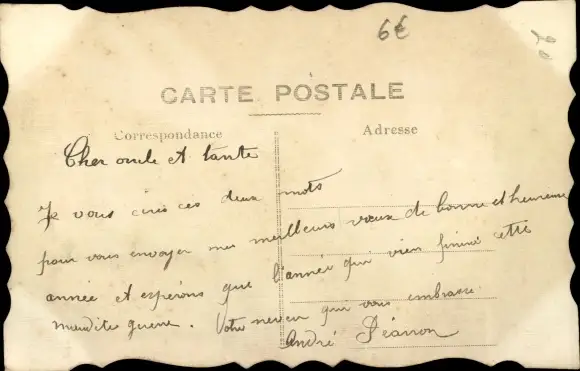 6€
CARTE POSTALE
Correspondance
Adresse
Cher oncle et tante
Je vous ciris ces deux mots
pour vous envoyer mes meilleurs vœux de bonne et heureuse
année et espérons que l'année qui vien finira cette
maudite guerre. Votre neveu qui vous embrasse
André